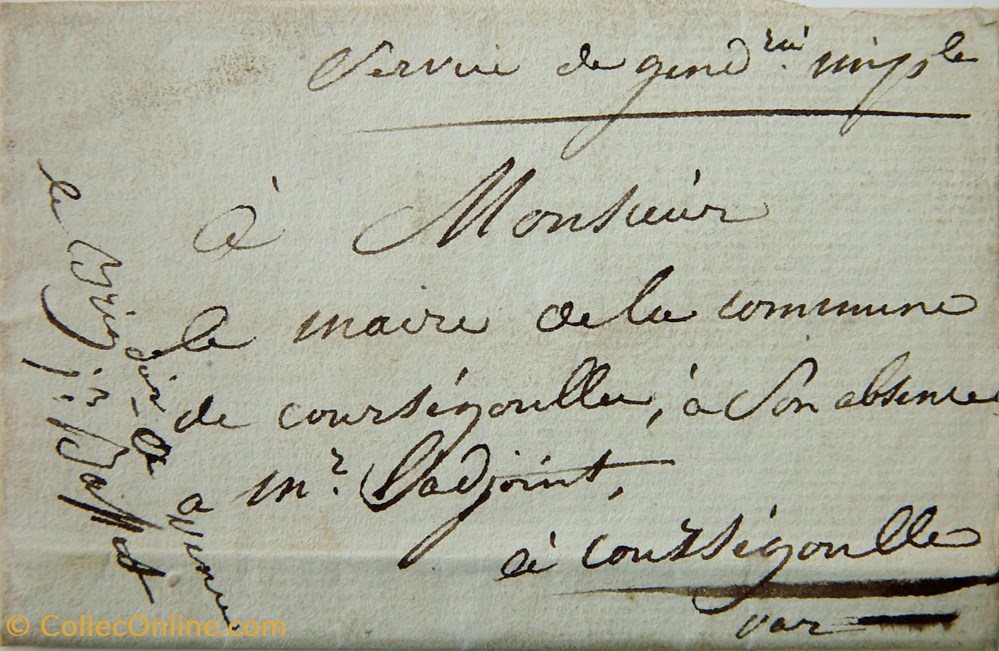 Service de gend.rie imp.le
à Monsieur
le maire de la commune
de courségoulle, à Son absence
a mr. L'adjoint,
à courségoulle
var
le Brig.dier de
a vence
© CollecOnline.com